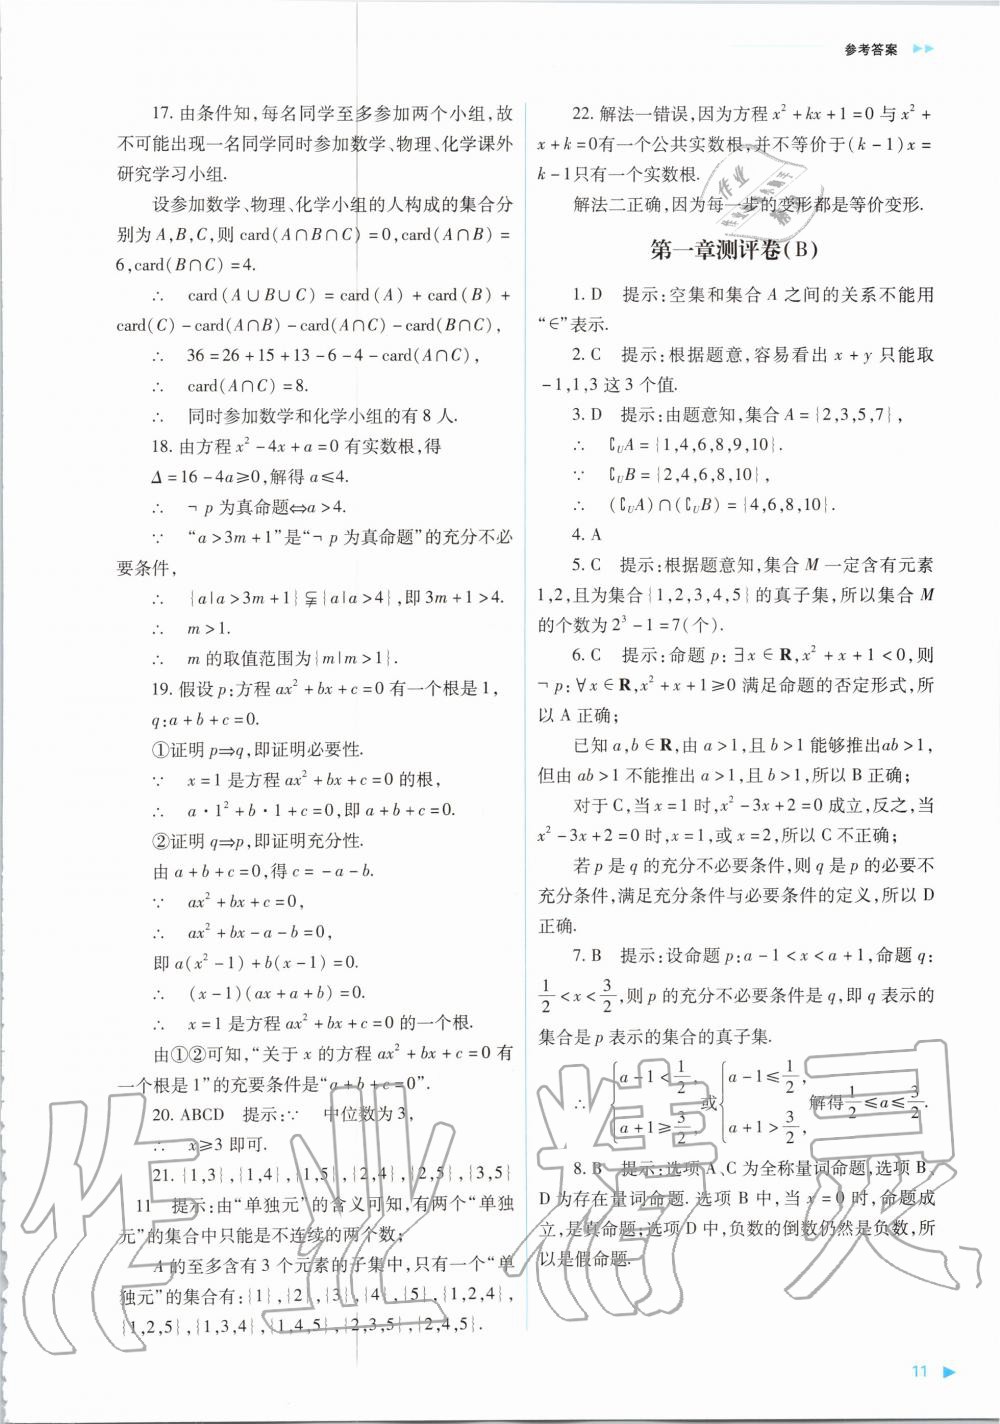 参考答案
17. 由条件知,每名同学至多参加两个小组,故
不可能出现一名同学同时参加数学、物理、化学课外
研究学习小组.
设参加数学、物理、化学小组的人构成的集合分
别为 A,B,C,则 card(A∩B∩C)=0,card(A∩B)=
6,card(B∩C)=4.
∴ card(A∪B∪C)=card(A)+card(B)+
card(C)-card(A∩B)-card(A∩C)-card(B∩C),
∴ 36=26+15+13-6-4-card(A∩C),
∴ card(A∩C)=8.
∴ 同时参加数学和化学小组的有 8 人.
18. 由方程 x²-4x+a=0 有实数根,得
Δ=16-4a≥0,解得 a≤4.
∴ ¬p 为真命题⇔a>4.
∵ “a>3m+1”是“¬p 为真命题”的充分不必
要条件,
∴ {a|a>3m+1}⫋{a|a>4},即 3m+1>4.
∴ m>1.
∴ m 的取值范围为{m|m>1}.
19. 假设 p:方程 ax²+bx+c=0 有一个根是 1,
q:a+b+c=0.
①证明 p⇒q,即证明必要性.
∵ x=1 是方程 ax²+bx+c=0 的根,
∴ a·1²+b·1+c=0,即 a+b+c=0.
②证明 q⇒p,即证明充分性.
由 a+b+c=0,得 c=-a-b.
∵ ax²+bx+c=0,
∴ ax²+bx-a-b=0,
即 a(x²-1)+b(x-1)=0.
∴ (x-1)(ax+a+b)=0.
∴ x=1 是方程 ax²+bx+c=0 的一个根.
由①②可知,“关于 x 的方程 ax²+bx+c=0 有
一个根是 1”的充要条件是“a+b+c=0”.
20. ABCD 提示:∵ 中位数为 3,
∴ x≥3 即可.
21. {1,3},{1,4},{1,5},{2,4},{2,5},{3,5}
11 提示:由“单独元”的含义可知,有两个“单独
元”的集合中只能是不连续的两个数;
A 的至多含有 3 个元素的子集中,只有一个“单
独元”的集合有:{1},{2},{3},{4},{5},{1,2,4},
{1,2,5},{1,3,4},{1,4,5},{2,3,5},{2,4,5}.
22. 解法一错误,因为方程 x²+kx+1=0 与 x²+
x+k=0有一个公共实数根,并不等价于(k-1)x=
k-1只有一个实数根.
解法二正确,因为每一步的变形都是等价变形.
第一章测评卷(B)
1. D 提示:空集和集合 A 之间的关系不能用
“∈”表示.
2. C 提示:根据题意,容易看出 x+y 只能取
-1,1,3 这 3 个值.
3. D 提示:由题意知,集合 A={2,3,5,7},
∴ ∁UA={1,4,6,8,9,10}.
∵ ∁UB={2,4,6,8,10},
∴ (∁UA)∩(∁UB)={4,6,8,10}.
4. A
5. C 提示:根据题意知,集合 M 一定含有元素
1,2,且为集合{1,2,3,4,5}的真子集,所以集合 M
的个数为 2³-1=7(个).
6. C 提示:命题 p:∃x∈R,x²+x+1<0,则
¬p:∀x∈R,x²+x+1≥0 满足命题的否定形式,所
以 A 正确;
已知 a,b∈R,由 a>1,且 b>1 能够推出ab>1,
但由 ab>1 不能推出 a>1,且 b>1,所以 B 正确;
对于 C,当 x=1 时,x²-3x+2=0 成立,反之,当
x²-3x+2=0 时,x=1,或 x=2,所以 C 不正确;
若 p 是 q 的充分不必要条件,则 q 是 p 的必要不
充分条件,满足充分条件与必要条件的定义,所以 D
正确.
7. B 提示:设命题 p:a-1<x<a+1,命题 q:
1/2<x<3/2,则 p 的充分不必要条件是 q,即 q 表示的
集合是 p 表示的集合的真子集.
∴ {a-1<1/2, a+1≥3/2 或 {a-1≤1/2, a+1>3/2, 解得 1/2≤a≤3/2.
8. B 提示:选项 A、C 为全称量词命题,选项 B、
D 为存在量词命题. 选项 B 中,当 x=0 时,命题成
立,是真命题;选项 D 中,负数的倒数仍然是负数,所
以是假命题.
作业精灵
11